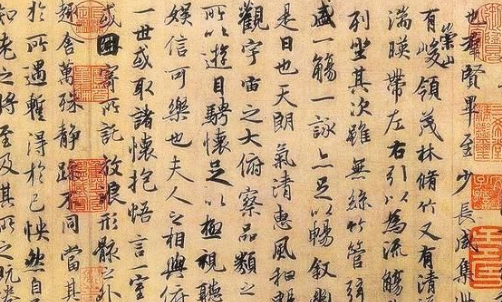 也羣賢畢至少長咸集此
有崇山峻領茂林脩竹又有清
湍暎帶左右引以為流觴
列坐其次雖無絲竹管弦
盛一觴一詠亦足以暢叙幽
是日也天朗氣清惠風和暢
觀宇宙之大俯察品類
所以遊目騁懷足以極視聽
娛信可樂也夫人之相與俯
一世或取諸懷抱悟言一室
或因寄所託放浪形骸之外
趣舍萬殊靜躁不同當其
於所遇暫得於己怏然自
知老之將至及其所之既惓